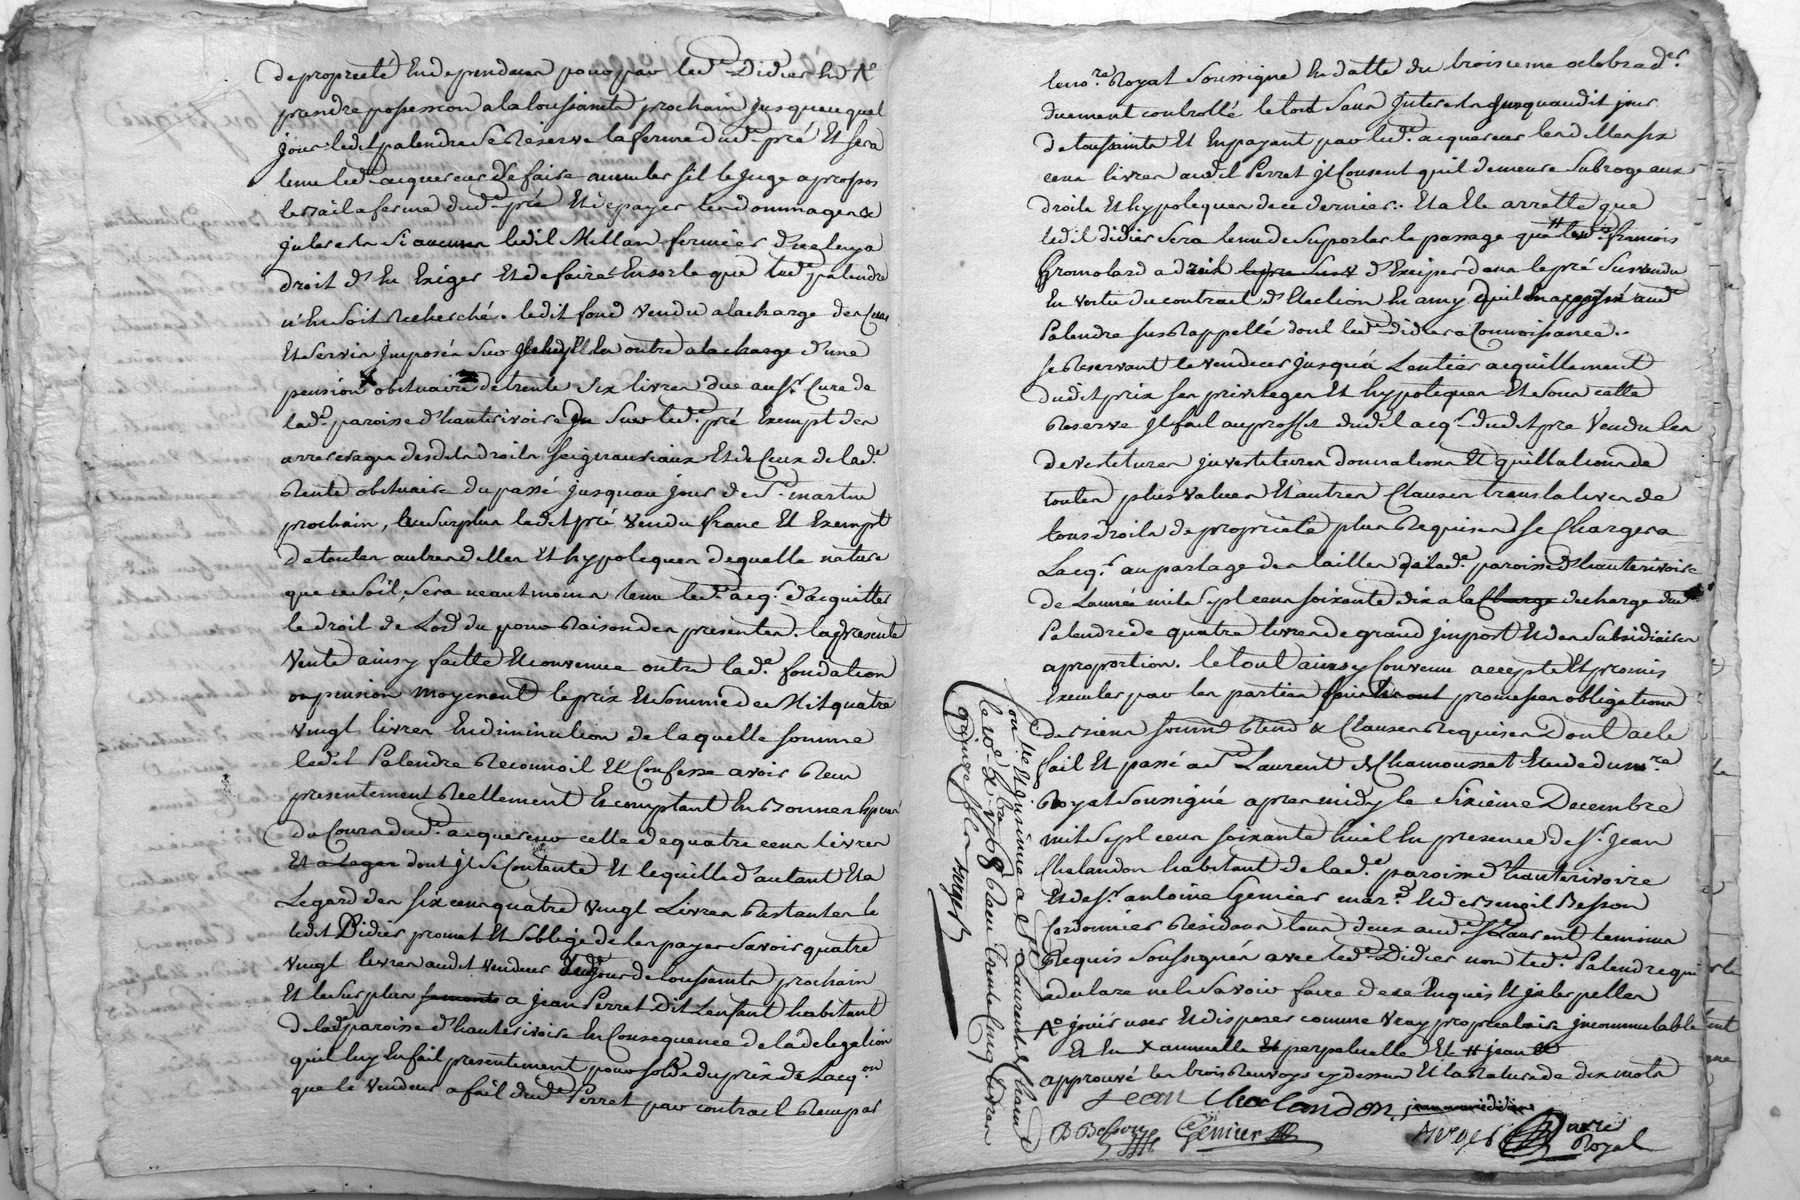 de proprieté En dependances pour par led. Didier En A°
prendre possession a la toussaints prochain jusqu'au quel
jour ledit palendre se Reserve la ferme dud. pré Et sera
tenu led. acquereur de faire annuler sil le juge apropos
le bail a ferme dud. pré Et de payer les dommages &
interets si aucuns ledit Millan fermier d'iceluy a
droit d'En Exiger Et de faire En sorte que led. palendre
n'En soit Recherché. ledit fond vendu a la charge des Cens
Et servis Imposés sur Iceluy Et En outre a la charge d'une
pension X obituaire de trente six livres due au Sr. Curé de
lad. paroisse d'hauterivoire sur led. pré Exempt des
arrerages desdits droits seigneuriaux Et de Ceux de lad.
Rente obituaire du passé jusqu'au jour de St. martin
prochain, au surplus ledit pré vendu franc Et Exempt
de toutes autres dettes Et hypoteques de quelle nature
que ce soit, sera neantmoins tenu led. acq.r d'acquitter
le droit de Lod du pour Raison des presentes. la presente
Vente ainsy faitte Et convenue outre lad. fondation
ou pension moyenant le prix Et somme de Mil quatre
vingt livres En diminution de laquelle somme
ledit Palendre Reconnoit Et Confesse avoir Reçu
presentement Reellement Et comptant En bonnes Especes
du Cours dud. acquereur celle de quatre cens livres
dont il se Contente Et le quitte d'autant Et a
Legard des six cens quatre vingt Livres Restantes le
ledit Didier promet Et s'oblige de les payer savoir quatre
vingt livres audit vendeur jour de toussaints prochain
Et le surplus a jean Perret Dit Lenfant habitant
de lad. paroisse d'hauterivoire En Consequence de la delegation
qu'il luy En fait presentement pour solde du prix de Lacq.on
que le vendeur a fait dud. Perret par contrat Reçu par
le no.re Royal soussigné En datte du troisieme octobre d.er
duement controllé le tout sans Interets jusqu'audit jour
de toussaints Et En payant par led. acquereur lesdittes six
cens livres audit Perret il Consent qu'il demeure subrogé aux
droits Et hypoteques de ce dernier. Et a Ete arretté que
ledit didier sera tenu de suporter le passage que led. francois
Gromolard a droit d'Exiper dans le pré sus vendu
En vertu du contrat d'Election En amy qu'il En a passé aud.
Palendre sus Rappellé dont led. didier a Connoissance.
se Reservant le vendeur jusqu'a Lentier acquittement
dudit prix ses privileges Et hypoteques Et sous cette
Reserve il fait au proffit dudit acq.r dudit pré vendu les
devestitures investitures donnations Et quittations de
toutes plus values Et autres Clauses translatives de
tous droits de proprieté plus Requises se Chargera
Lacq.r au partage des tailles de lad. paroisse d'hauterivoire
de Lannée mil sept cens soixante dix a la decharge dud.
Palendre de quatre livres de grand import Et des subsidiaires
a proportion. le tout ainsy Convenu accepté Et promis
Executer par les parties promesses obligations
de biens soumis Rend & Clauses Requises Dont acte
fait Et passé a St. Laurent de Chamousset Etude du no.re
Royal soussigné apres midy le sixième Decembre
mil sept cens soixante huit En presence de Sr. Jean
Chalandon habitant de lad. paroisse d'hauterivoire
Et de Sr. antoine Genier mar.d Et de benoit Besson
Cordonnier Residens tous deux aud. St. Laurent temoins
Requis soussignés avec led. Didier non led. Palendre qui
a declaré ne le savoir faire de ce Enquis Et interpellés
A° jouir user Et disposer comme vray proprietaire incommutable
Et En X annuelle perpetuelle Et # jean
approuvé les trois Renvoys cy dessus Et la Rature de dix mots
Jean Chalandon jean marie didier
B Besson Genier Berger Royal
Con.lé Et insinué a St Laurent de Cham.t
le 10 Xbre 1768 Reçu Trente Cinq livres
Berger